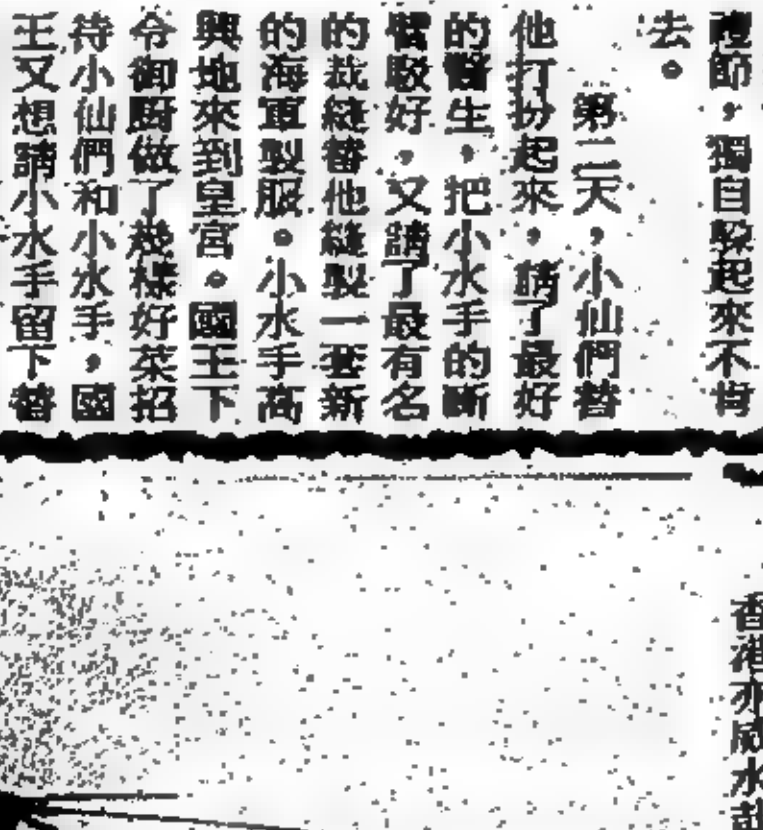 禮師，獨自躲起來不肯
去。
第二天，小仙們替
他打扮起來，請了最好
的醫生，把小水手的斷
臂駁好，又請了最有名
的裁縫替他縫製一套新
的海軍製服。小水手高
興地來到皇宮。國王下
令御廚做了幾樣好菜招
待小仙們和小水手，國
王又想請小水手留下替
香港亦威水